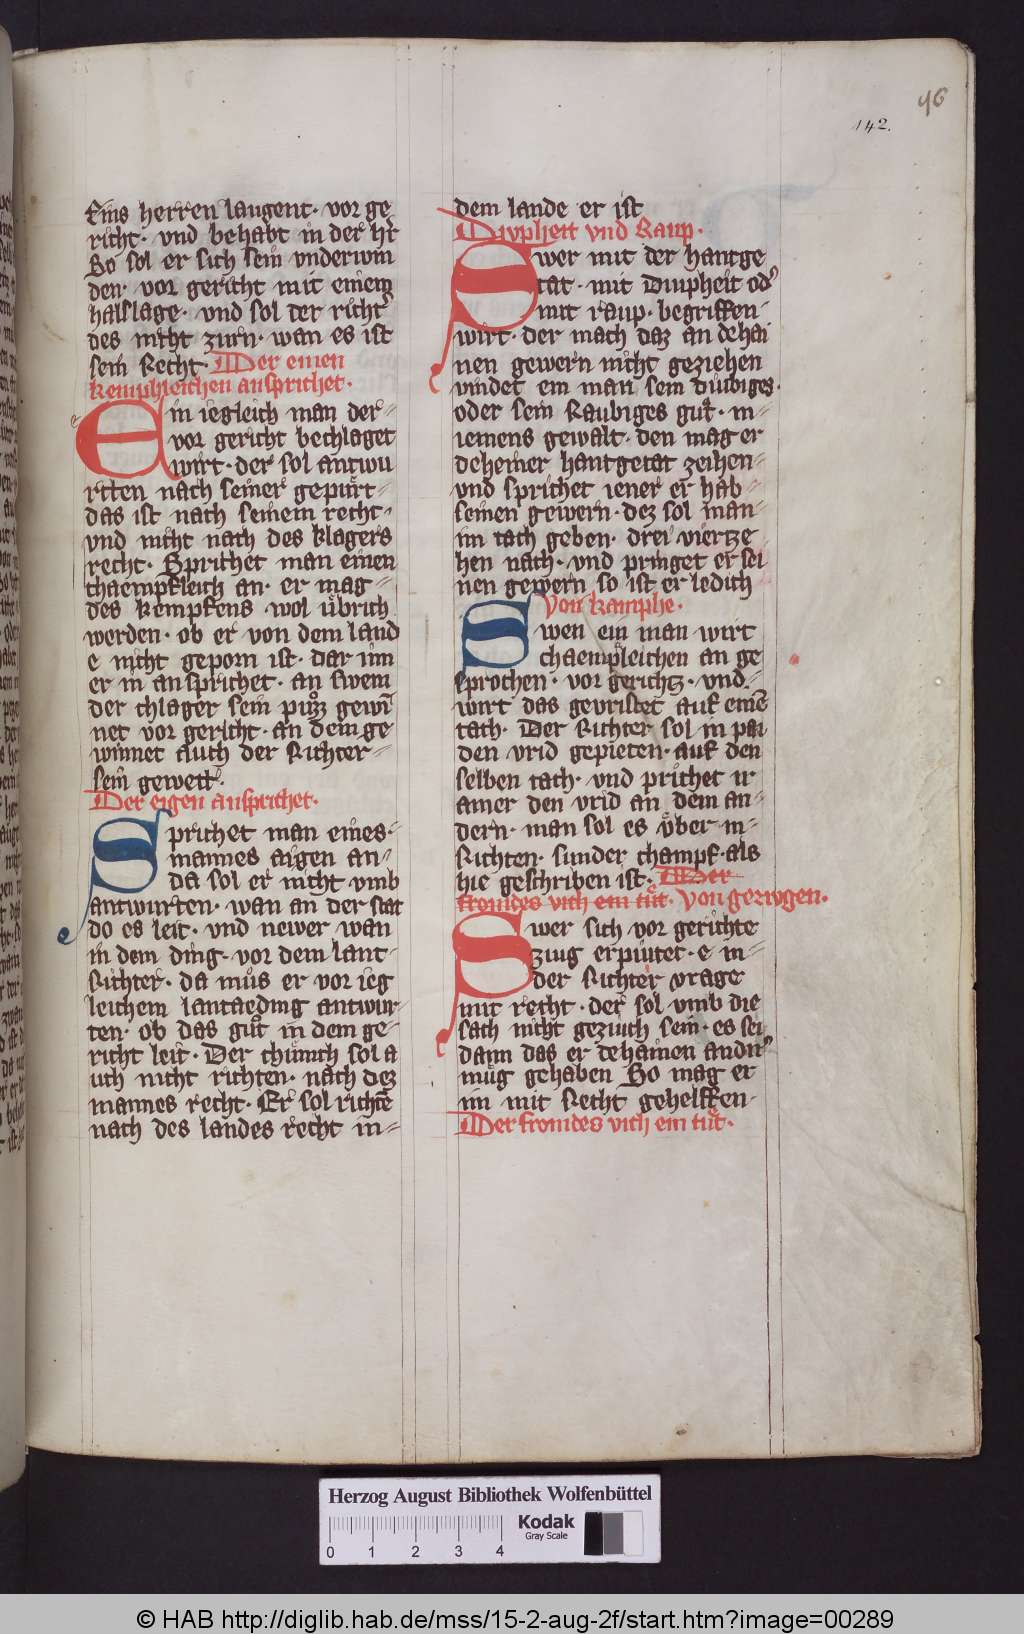 96
142.
Eins herren laugent· vor ge
richt· vnd behabt in der hr̄
So sol er sich sein vnderwin
den· vor gericht mit einem
halslage· vnd sol der richt̾
des nicht zurn· wan es ist
sein Recht· Der einen
kemphleichen ansprichet·
Ein iegleich man der-
vor gericht bechlaget
wirt· der sol antwu
rtten nach seiner gepurt-
das ist nach seinem recht·
vnd nicht nach des klagers
recht· Sprichet man einen
chaempfleich an· er mag-
des kempfens wol ůbrich
werden· ob er von dem land
e nicht geporn ist· dar inn
er in ansprichet· an swem
der chlager sein půz gewī
net vor gericht· an dem ge
winnet auch der Richter-
sein gewett·
Der eigen ansprichet·
Sprichet man eines-
mannes aigen an-
da sol er nicht vmb
antwurten· wan an der stat
do es leit· vnd newer wan
in dem ding· vor dem lant-
Richter· da můs er vor ieg
leichem lantaeding antwur-
ten· ob das gůt in dem ge-
richt leit· Der chůnich sol a
uch nicht richten· nach dez
mannes recht· Er sol richtē
nach des landes recht in-
dem lande er ist
Diupheit vnd Raup·
Swer mit der hantge
tat· mit Diupheit od̾
mit raup· begriffen-
wirt· der mach daz an dehai
nen gewern nicht geziehen
vindet ein man sein diubiges·
oder sein Raubiges gůt· in-
iemens gewalt· den mag er
deheiner hantgetat zeihen-
vnd sprichet iener er hab-
seinen gewern· dez sol man-
im tach geben· drei viertze
hen nach· vnd pringet er sei
nen gewern so ist er ledich
Von kamphe·
Swen ein man wirt
chaempleichen an ge
sprochen· vor gerichtz· vnd-
wirt das gevristet auf einē
tach· Der Richter sol in pai
den vrid gepieten· auf den
selben tach· vnd prichet ir
ainer den vrid an dem an-
dern· man sol es ůber in-
Richten· sunder champf· als
hie geschriben ist· Der
fromdes vich ein tůt· Von gezivgen·
Swer sich vor gerichte
ziug erpiutet· e in-
der Richter vrage
mit recht· der sol vmb die
sach nicht geziuch sein· es sei
dann das er dehainen andn̾
můg gehaben So mag er
im mit Recht gehelffen-
Der fromdes vich ein tůt·
Herzog August Bibliothek Wolfenbüttel
Kodak
Gray Scale
0 1 2 3 4
© HAB http://diglib.hab.de/mss/15-2-aug-2f/start.htm?image=00289